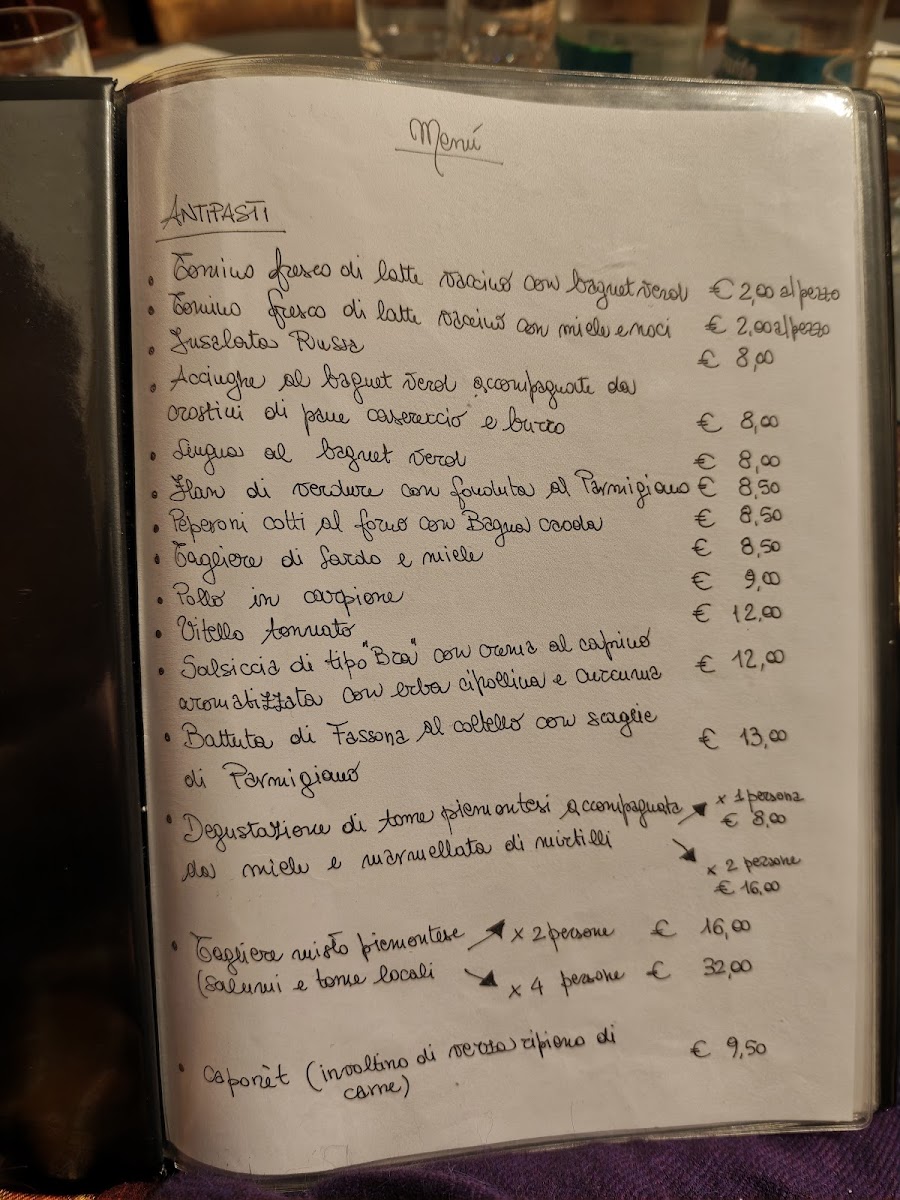 Menú
ANTIPASTI
• Tomino fresco di latte vaccino con bagnet verd € 2,00 al pezzo
• Tomino fresco di latte vaccino con miele e noci € 2,00 al pezzo
• Insalata Russa € 8,00
• Acciughe al bagnet verd accompagnate da
crostini di pane casereccio e burro € 8,00
• Lingua al bagnet verd € 8,00
• Flan di verdure con fonduta al Parmigiano € 8,50
• Peperoni cotti al forno con Bagna caoda € 8,50
• Tagliere di lardo e miele € 8,50
• Pollo in carpione € 9,00
• Vitello tonnato € 12,00
• Salsiccia di tipo "Bra" con crema al caprino
aromatizzata con erba cipollina e curcuma € 12,00
• Battuta di Fassona al coltello con scaglie
di Parmigiano € 13,00
• Degustazione di tome piemontesi accompagnata
da miele e marmellata di mirtilli
x 1 persona
€ 8,00
x 2 persone
€ 16,00
• Tagliere misto piemontese x 2 persone € 16,00
(salumi e tome locali x 4 persone € 32,00
• caponèt (involtino di verza ripieno di
carne) € 9,50